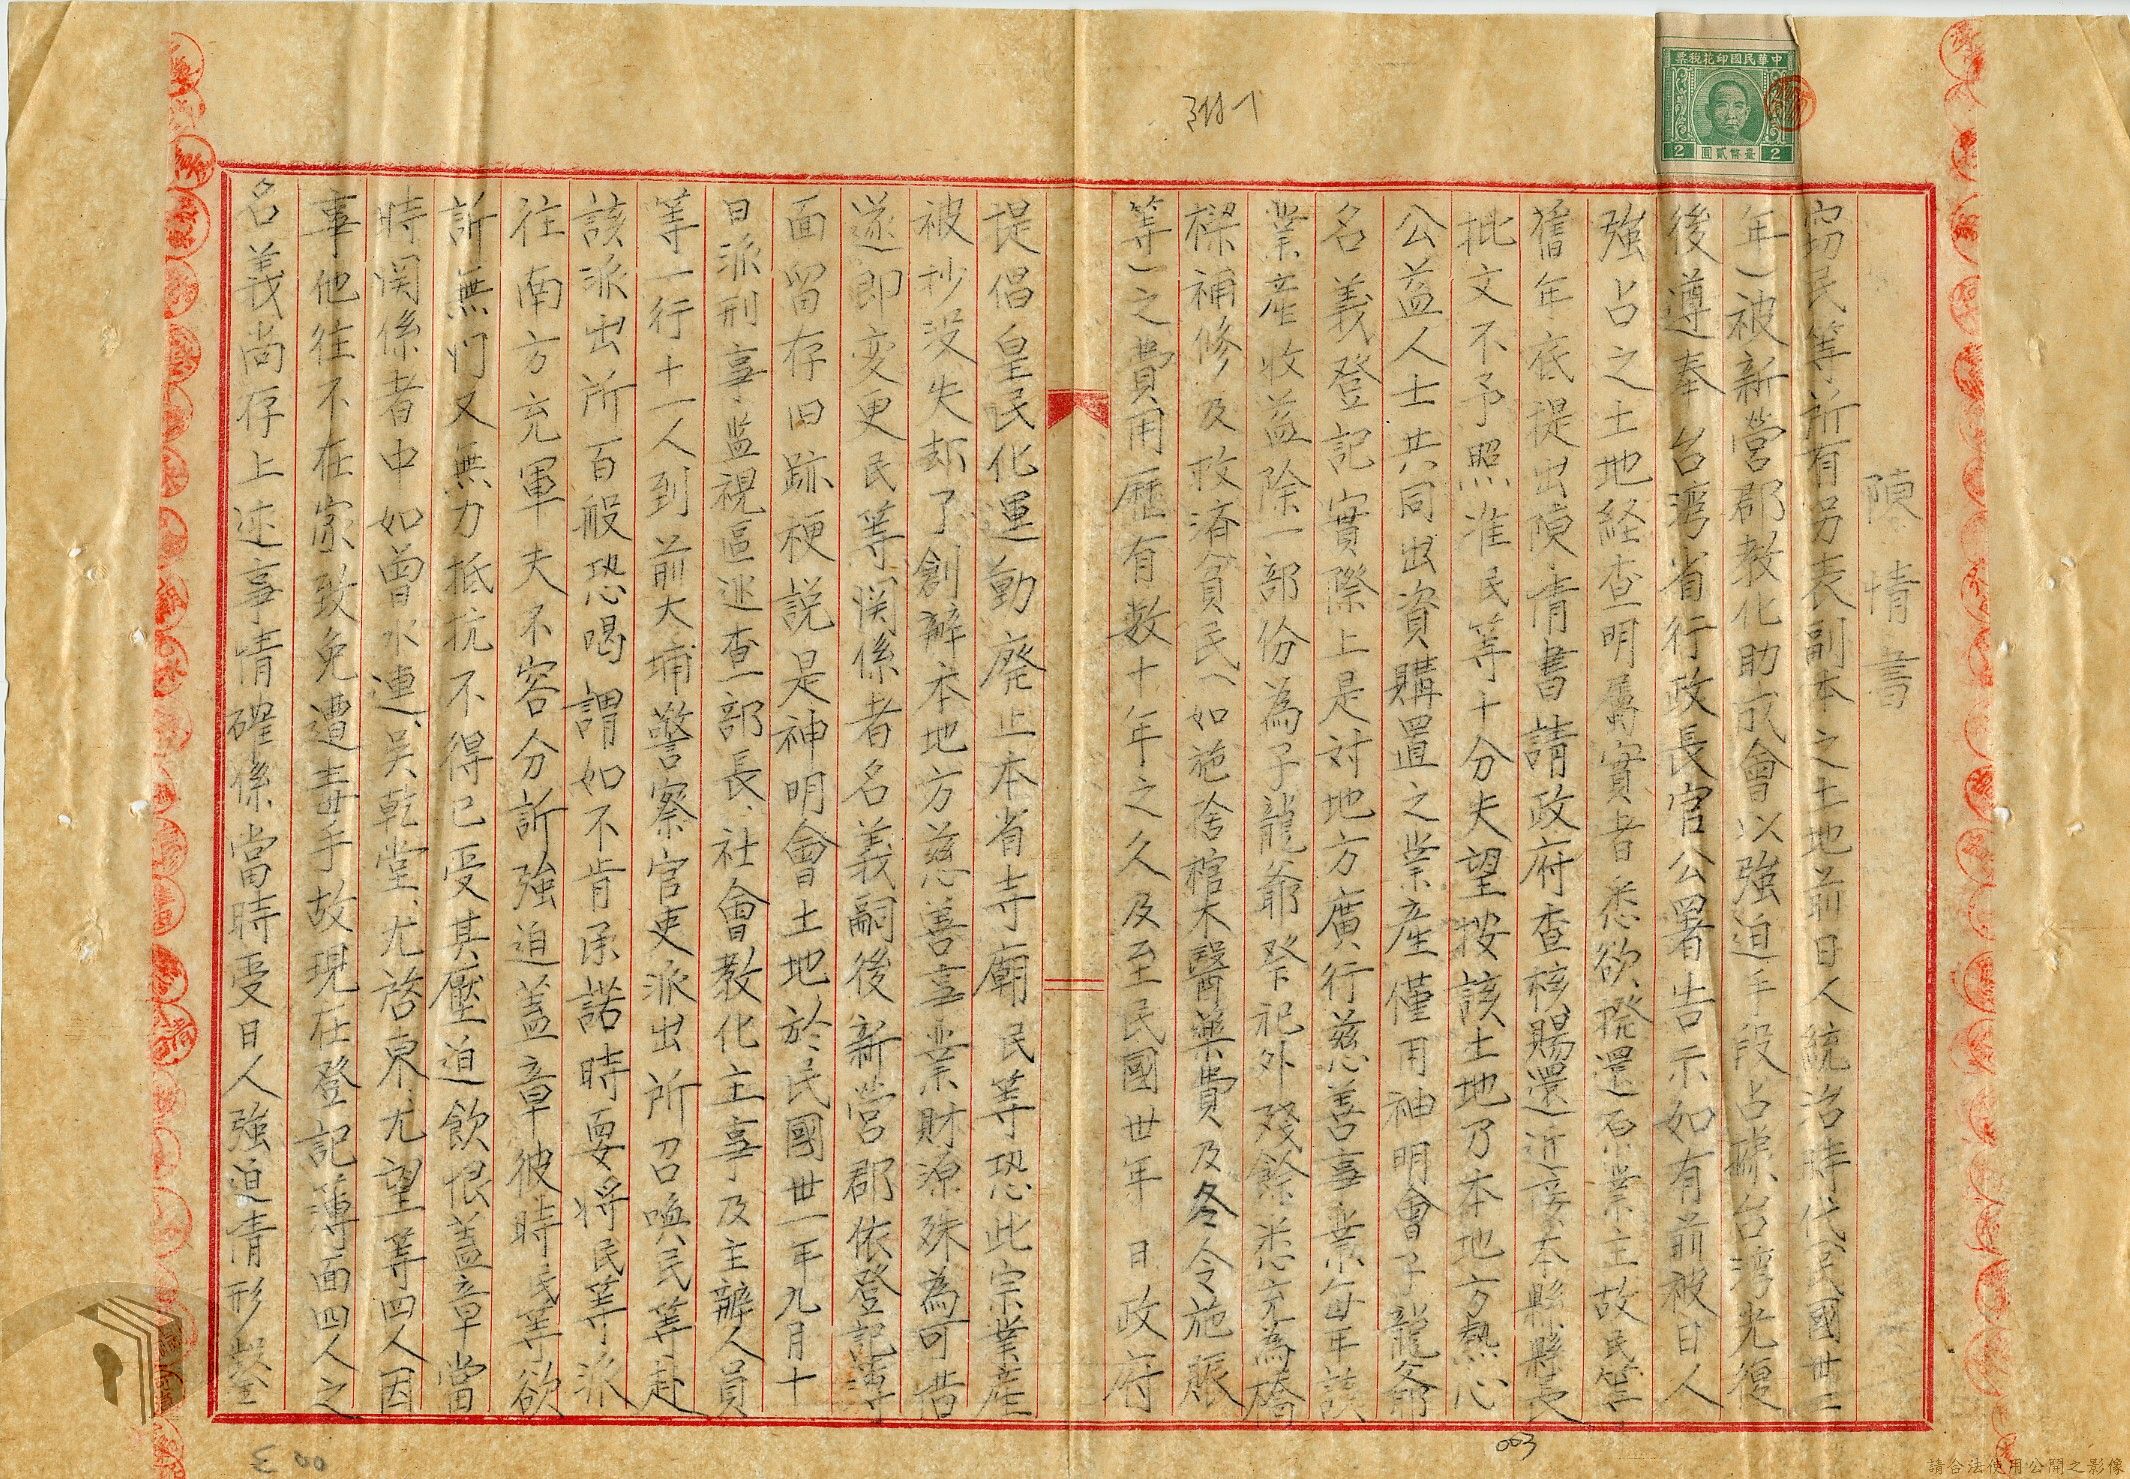 附1
中華民國印花稅票
2 臺幣貳圓 2
陳情書
竊民等所有另表副本之土地前日人統治時代民國卅三
年)被新營郡教化助成會以強迫手段占據台湾光復
後遵奉台湾省行政長官公署告示如有前被日人
強占之土地経查明屬實者悉欲撥還原業主故民等
舊年底提出陳情書請政府查核賜還近接本縣縣長
批文不予照准民等十分失望按該土地乃本地方熱心
公益人士共同出資購置之業產僅用神明會子龍爺
名義登記實際上是对地方廣行慈善事業每年該
業產收益除一部份為子龍爺祭祀外殘餘悉充為橋
樑補修及救済貧民(如施捨棺木醫藥費及冬令施賑
等)之費用歷有数十年之久及至民國卅年日政府
提倡皇民化運動廃止本省寺廟民等恐此宗業產
被抄没失却了創辦本地方慈善事業財源殊為可惜
遂即変更民等関係者名義嗣後新營郡依登記簿
面留存旧跡梗説是神明會土地於民國卅一年九月十
日派刑事監視區巡查部長、社會教化主事及主辦人員
等一行十一人到前大埔警察官吏派出所召喚民等赴
該派出所百般恐喝謂如不肯承諾時要將民等派
往南方充軍夫不容分訴強迫蓋章彼時民等欲
訴無门又無力抵抗不得已受其壓迫飲恨蓋章當
時関係者中如曾水連、吳乾堂、尤啓東、尤望等四人因
事他往不在家致免遭毒手故現在登記薄面四人之
名義尚存上述事情確係當時受日人強迫情形鑿
003
003
請合法使用公開之影像